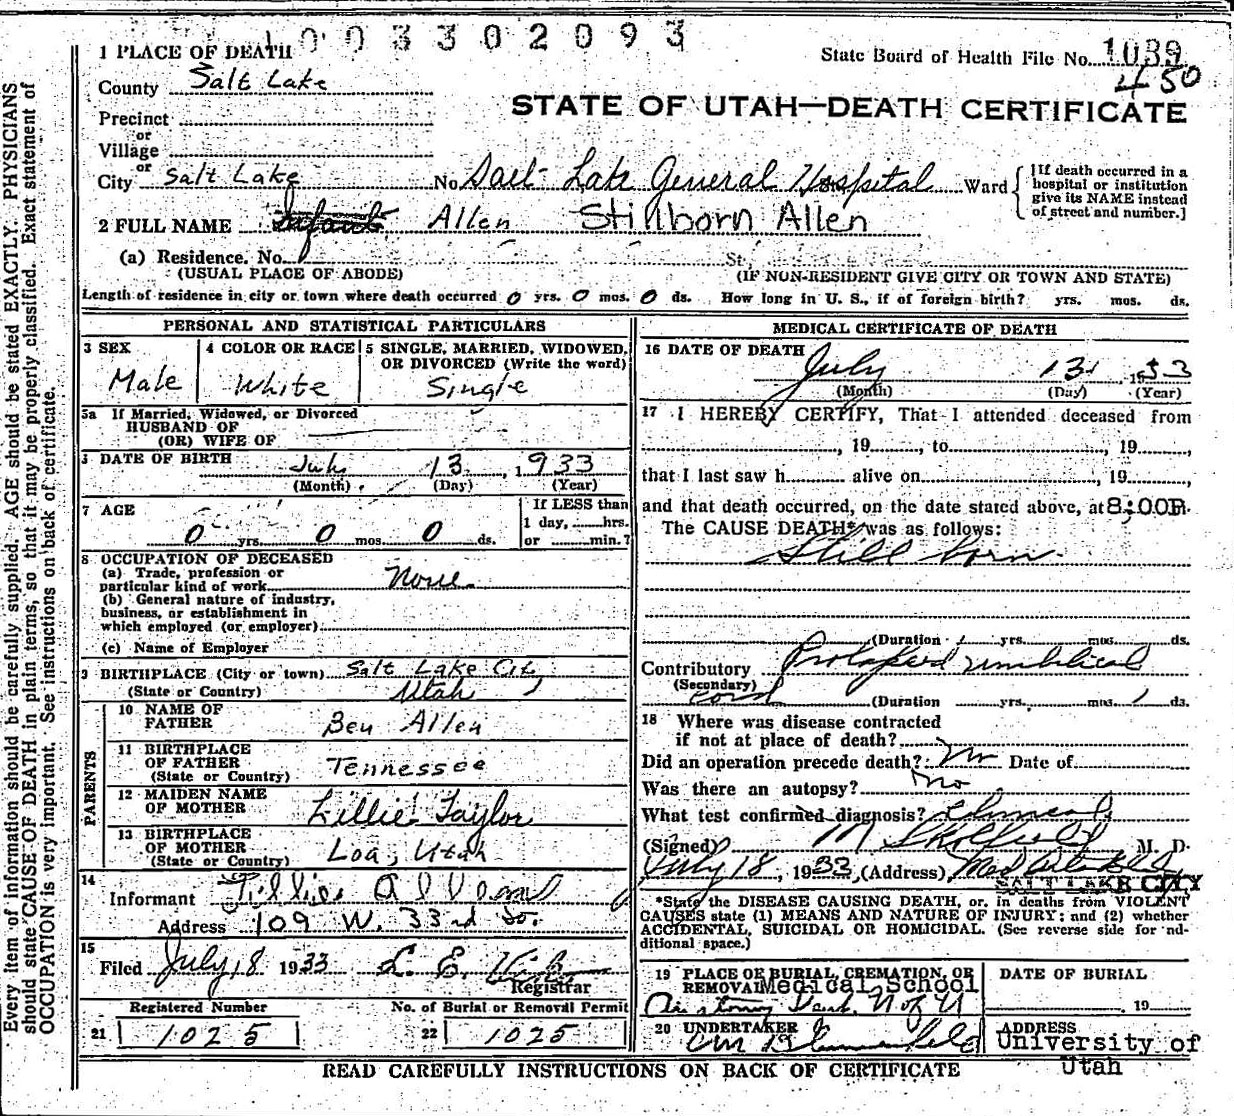 1003302093
1 PLACE OF DEATH
State Board of Health File No. 1039
450
County Salt Lake
STATE OF UTAH—DEATH CERTIFICATE
Precinct
or
Village
or
City Salt Lake No. Salt Lake General Hospital Ward
[If death occurred in a hospital or institution give its NAME instead of street and number.]
2 FULL NAME Infant Allen Stillborn Allen
(a) Residence. No. St.
(USUAL PLACE OF ABODE) (IF NON-RESIDENT GIVE CITY OR TOWN AND STATE)
Length of residence in city or town where death occurred 0 yrs. 0 mos. 0 ds. How long in U. S., if of foreign birth? yrs. mos. ds.
PERSONAL AND STATISTICAL PARTICULARS
3 SEX Male
4 COLOR OR RACE White
5 SINGLE, MARRIED, WIDOWED, OR DIVORCED (Write the word) Single
5a If Married, Widowed, or Divorced
HUSBAND OF
(OR) WIFE OF
DATE OF BIRTH July 13, 1933
(Month) (Day) (Year)
7 AGE
If LESS than
1 day, hrs.
0 yrs. 0 mos. 0 ds. or min.?
8 OCCUPATION OF DECEASED
(a) Trade, profession or
particular kind of work None
(b) General nature of industry,
business, or establishment in
which employed (or employer)
(c) Name of Employer
9 BIRTHPLACE (City or town) Salt Lake City
(State or Country) Utah
PARENTS
10 NAME OF
FATHER Ben Allen
11 BIRTHPLACE
OF FATHER
(State or Country) Tennessee
12 MAIDEN NAME
OF MOTHER Lillie Taylor
13 BIRTHPLACE
OF MOTHER
(State or Country) Loa, Utah
14
Informant
Address 109 W. 33rd So.
15
Filed July 18 1933 L. E.
Registrar
Registered Number No. of Burial or Removal Permit
21 1025 22 1025
MEDICAL CERTIFICATE OF DEATH
16 DATE OF DEATH
July 13, 1933
(Month) (Day) (Year)
17 I HEREBY CERTIFY, That I attended deceased from
, 19 , to , 19 ,
that I last saw h alive on , 19 ,
and that death occurred, on the date stated above, at 8:00P.
The CAUSE DEATH* was as follows:
Still born
(Duration yrs. mos. ds.
Contributory Prolapsed umbilical
(Secondary)
cord (Duration yrs. mos. ds.
18 Where was disease contracted
if not at place of death?
Did an operation precede death? No Date of
Was there an autopsy? No
What test confirmed diagnosis? Clinical
(Signed) M. D.
July 18, 1933, (Address)
SALT LAKE CITY
*State the DISEASE CAUSING DEATH, or, in deaths from VIOLENT
CAUSES state (1) MEANS AND NATURE OF INJURY; and (2) whether
ACCIDENTAL, SUICIDAL OR HOMICIDAL. (See reverse side for ad-
ditional space.)
19 PLACE OF BURIAL, CREMATION, OR
REMOVAL Medical School
Anatomy Dept. U of U
DATE OF BURIAL
, 19
20 UNDERTAKER
ADDRESS
University of
Utah
READ CAREFULLY INSTRUCTIONS ON BACK OF CERTIFICATE
Every item of information should be carefully supplied. AGE should be stated EXACTLY. PHYSICIANS
should state CAUSE OF DEATH in plain terms, so that it may be properly classified. Exact statement of
OCCUPATION is very important. See instructions on back of certificate.